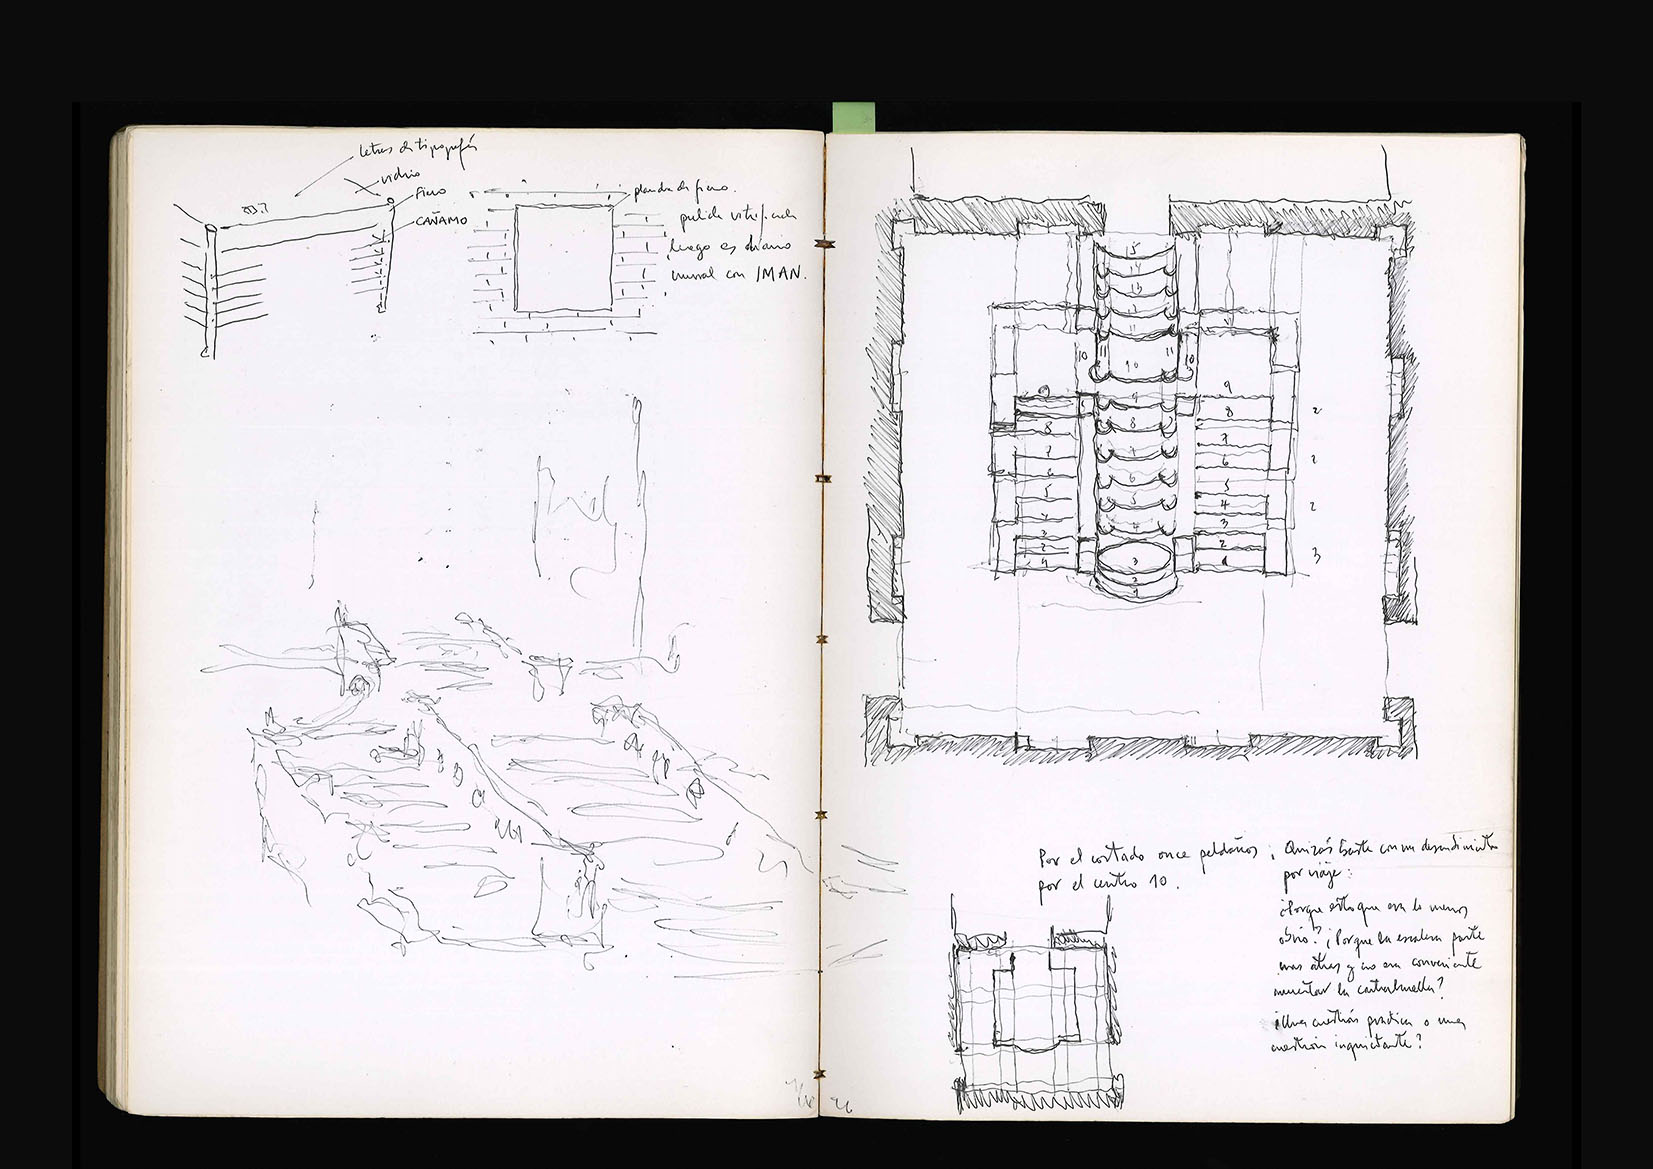 letras de tipografía
vidrio
Fierro
CAÑAMO
plancha de fierro.
luego es diario
mural con IMAN.
15
14
13
11
10 11 11 10
10
9 9
8 8 8
7 7 7
6 6 6
5 5 5
4 4 4
3 3 3
2 2 2
1 1 1
2
2
2
3
Por el costado once peldaños ;
por el centro 10.
Quizás baste con un descendimiento
por viaje:
¿Porque esto que era lo menos
obvio? ¿Porque la escalera parte
mas atras y no era conveniente
aumentar la contrahuella?
¿Una cuestión práctica o una
cuestión inquietante?